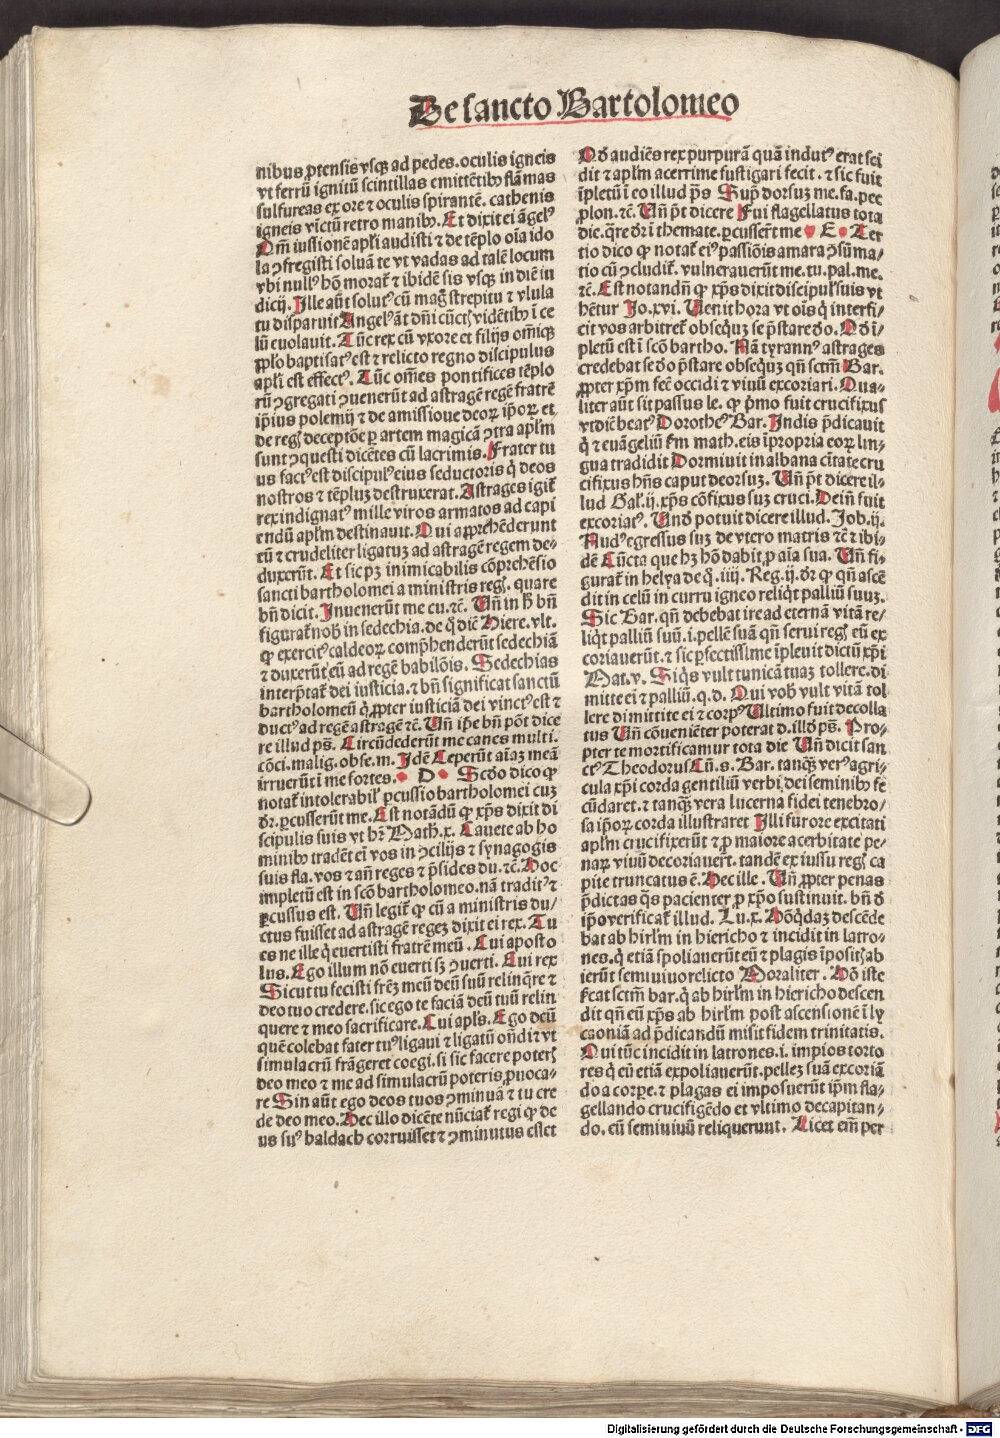 De sancto Bartolomeo
nibus ꝓtensis vsqꝫ ad pedes. oculis igneis
vt ferrū ignitū scintillas emittētibꝰ flāmas
sulfureas ex ore ⁊ oculis spirantē. cathenis
igneis victū retro manibꝰ. Et dixit ei āgelꝰ
Qm̄ iussionē apl̓i audisti ⁊ de tēplo oīa ido
la ꝯfregisti soluā te vt vadas ad talē locum
vbi nullꝰ hō morat᷑ ⁊ ibidē sis vsqꝫ in diē iu
dicij. Ille aūt solutꝰ cū mag̃ strepitu ⁊ vlula
tu disparuit Angelꝰ āt dn̄i cūctꝭ vidētibꝰ ī ce
lū euolauit. Tūc rex cū vxore et filijs om̄iqꝫ
ppl̓o baptisatꝰ est ⁊ relicto regno discipulus
apl̓i est effectꝰ. Tūc om̄es pontifices tēplo
rū ꝯgregati ꝯuenerūt ad astragē regē fratrē
ip̄ius polemij ⁊ de amissioue deoꝝ ip̄oꝝ et
de regꝭ deceptōe ꝑ artem magicā ꝯtra apl̓m
sunt ꝯquesti dicētes cū lacrimis. Frater tu
us factꝰ est discipulꝰ eius seductoris q̇ deos
nostros ⁊ tēpluꝫ destruxerat. Astrages igit᷑
rex indignatꝰ mille viros armatos ad capi
endū apl̓m destinauit. Qui apprehēderunt
eū ⁊ crudeliter ligatuꝫ ad astragē regem de⸗
duxerūt. Et sic pꝫ inimicabilis cōprehēsio
sancti bartholomei a ministris regꝭ. quare
bn̄ dicit. Inuenerūt me cu. ⁊c. Vn̄ in ħ bn̄
figurat᷑ nob̄ in sedechia. de q̇ diē Hiere. vlt.
ꝙ exercitꝰ caldeoꝝ comp̄henderūt sedechiā
⁊ duxerūt eū ad regē babilōis. Sedechias
interp̄tat᷑ dei iusticia. ⁊ bn̄ significat sanctū
bartholomeū q̇ ꝓpter iusticiā dei vinctꝰ est ⁊
ductꝰ ad regē astragē ⁊c̄. Vn̄ ip̄e bn̄ pōt dice
re illud ps̄. Circūdederūt me canes multi.
cōci. malig. obse. m. Idē Ceperūt aīaꝫ meā
irruerūt ī me fortes. D Scd̄o dico ꝙ
notat᷑ intolerabil̓ ꝑcussio bartholomei cuꝫ
dr̄. ꝑcusserūt me. Est notādū ꝙ xp̄s dixit di
scipulis suis vt hr̄ Math. x. Cauete ab ho
minibꝰ tradēt ei̅ vos in ꝯcilijs ⁊ synagogis
suis fla. vos ⁊ an̄ reges ⁊ p̄sides du. ⁊c̄. Hoc
impletū est in scō bartholomeo. nā traditꝰ ⁊
ꝑcussus est. Vn̄ legit᷑ ꝙ cū a ministris du⸗
ctus fuisset ad astragē regeꝫ dixit ei rex. Tu
es ne ille q̇ euertisti fratrē meū. Cui aposto
lus. Ego illum nō euerti sꝫ ꝯuerti. Cui rex
Sicut tu fecisti frēꝫ meū deū suū relinq̄re ⁊
deo tuo credere. sic ego te faciā deū tuū relin
quere ⁊ meo sacrificare. Cui apl̓s. Ego deū
quē colebat fater tuꝰ ligaui ⁊ ligatū on̄di ⁊ vt
simulacrū frāgeret coegi. si sic facere poterꝭ
deo meo ⁊ me ad simulacrū poteris ꝓuoca⸗
re Sin aūt ego deos tuos ꝯminuā ⁊ tu cre
de deo meo. Hec illo dicēte nūciat᷑ regi ꝙ de
us suꝰ baldach corruisset ⁊ ꝯminutus esset
Qd̄ audiēs rex purpurā quā indutꝰ erat sci
dit ⁊ apl̓m acerrime fustigari fecit. ⁊ sic fuit
īpletū ī eo illud ps̄ Supͣ dorsuꝫ me. fa. pec
ꝓlon. ⁊c. Vn̄ pt̄ dicere Fui flagellatus tota
die. q̄re dr̄ ī themate. ꝑcusser̄t me E Ter
tio dico ꝙ notat᷑ eiꝰ passiōis amara ꝯsūma⸗
tio cū ꝯcludit᷑. vulnerauerūt me. tu. pal. me.
⁊c. Est notandn̄ ꝙ xp̄s dixit discipul̓ suis vt
hētur Jo. xvi. Uenit hora vt oīs q̇ interfi⸗
cit vos arbitret᷑ obsequꝫ se p̄stare do. Qd̄ ī⸗
pletū est ī scō bartho. Nā tyrannꝰ astrages
credebat se do p̄stare obsequꝫ qn̄ sctm̄ Bar.
ꝓpter xp̄m fec̄ occidi ⁊ viuū excoriari. Qua⸗
liter aūt sit passus le. ꝙ pͥmo fuit crucifixus
vt diē beatꝰ Dorotheꝰ Bar. Indis p̄dicauit
q̇ ⁊ euāgeliū ẜm math. eis īpropria eoꝝ lin⸗
gua tradidit Dormiuit in albana cītate cru
cifixus hn̄s caput deorsuꝫ. Vn̄ pt̄ dicere il⸗
lud Gal̓. ij. xp̄s cōfixus suꝫ cruci. Dein̄ fuit
excoriatꝰ. Vnd̄ potuit dicere illud. Job. ij.
Nudꝰ egressus suꝫ de vtero matris ⁊c̄ ⁊ ibi⸗
dē Cūcta que hꝫ hō dabit ꝓ aīa sua. Vn̄ fi⸗
gurat᷑ in helya de q̇. iiij. Reg. ij. dr̄ ꝙ qn̄ ascē
dit in celū in curru igneo reliqt̄ palliū suuꝫ.
Sic Bar. qn̄ debebat ire ad eternā vitā re⸗
liqt̄ palliū suū. i. pellē suā qn̄ serui regꝭ eū ex
coriauerūt. ⁊ sic ꝑfectissime īpleuit dictū xp̄i
Mat. v. Siqͥs vult tunicā tuaꝫ tollere. di
mitte ei ⁊ palliū. q. d. Qui vob̄ vult vitā tol
lere dimittite ei ⁊ corpꝰ Ultimo fuit decolla
tus Vn̄ cōueniēter poterat d. illd̄ ps̄. Pro⸗
pter te mortificamur tota die Vn̄ dicit san
ctꝰ Theodorus Cū. s. Bar. tanqꝫ verꝰ agri⸗
cula xp̄i corda gentiliū verbi dei seminibꝰ fe
cūdaret. ⁊ tanqꝫ vera lucerna fidei tenebro⸗
sa ip̄oꝝ corda illustraret Illi furore excitati
apl̓m crucifixerūt ⁊ ꝓ maiore acerbitate pe⸗
naꝝ viuū decoriauer̄t. tandē ex iussu regꝭ ca
pite truncatus ē. Hec ille. Vn̄ ꝓpter penas
p̄dictas q̄s pacienter ꝓ xp̄o sustinuit. bn̄ d̄
ip̄o verificat᷑ illud. Lu. x. Hō qͥdaꝫ descēde
bat ab hirl̓m in hiericho ⁊ incidit in latro⸗
nes. q̇ etiā spoliauerūt eū ⁊ plagis īpositꝭ ab
ierūt semiuiuo relicto Moraliter. Hō iste
fcat sctm̄ bar. q̇ ab hirl̓m in hiericho descen
dit qn̄ eū xp̄s ab hirl̓m post ascensionē ī ly
caoniā ad p̄dicandū misit fidem trinitatis.
Qui tūc incidit in latrones. i. impios torto
res q̇ eū etiā expoliauerūt. pelleꝫ suā excoriā
do a corꝑe. ⁊ plagas ei imposuerūt ip̄m fla⸗
gellando crucifigēdo et vltimo decapitan⸗
do. eū semiuiuū reliquerunt. Licet em̄ per
Digitalisierung gefördert durch die Deutsche Forschungsgemeinschaft - DFG